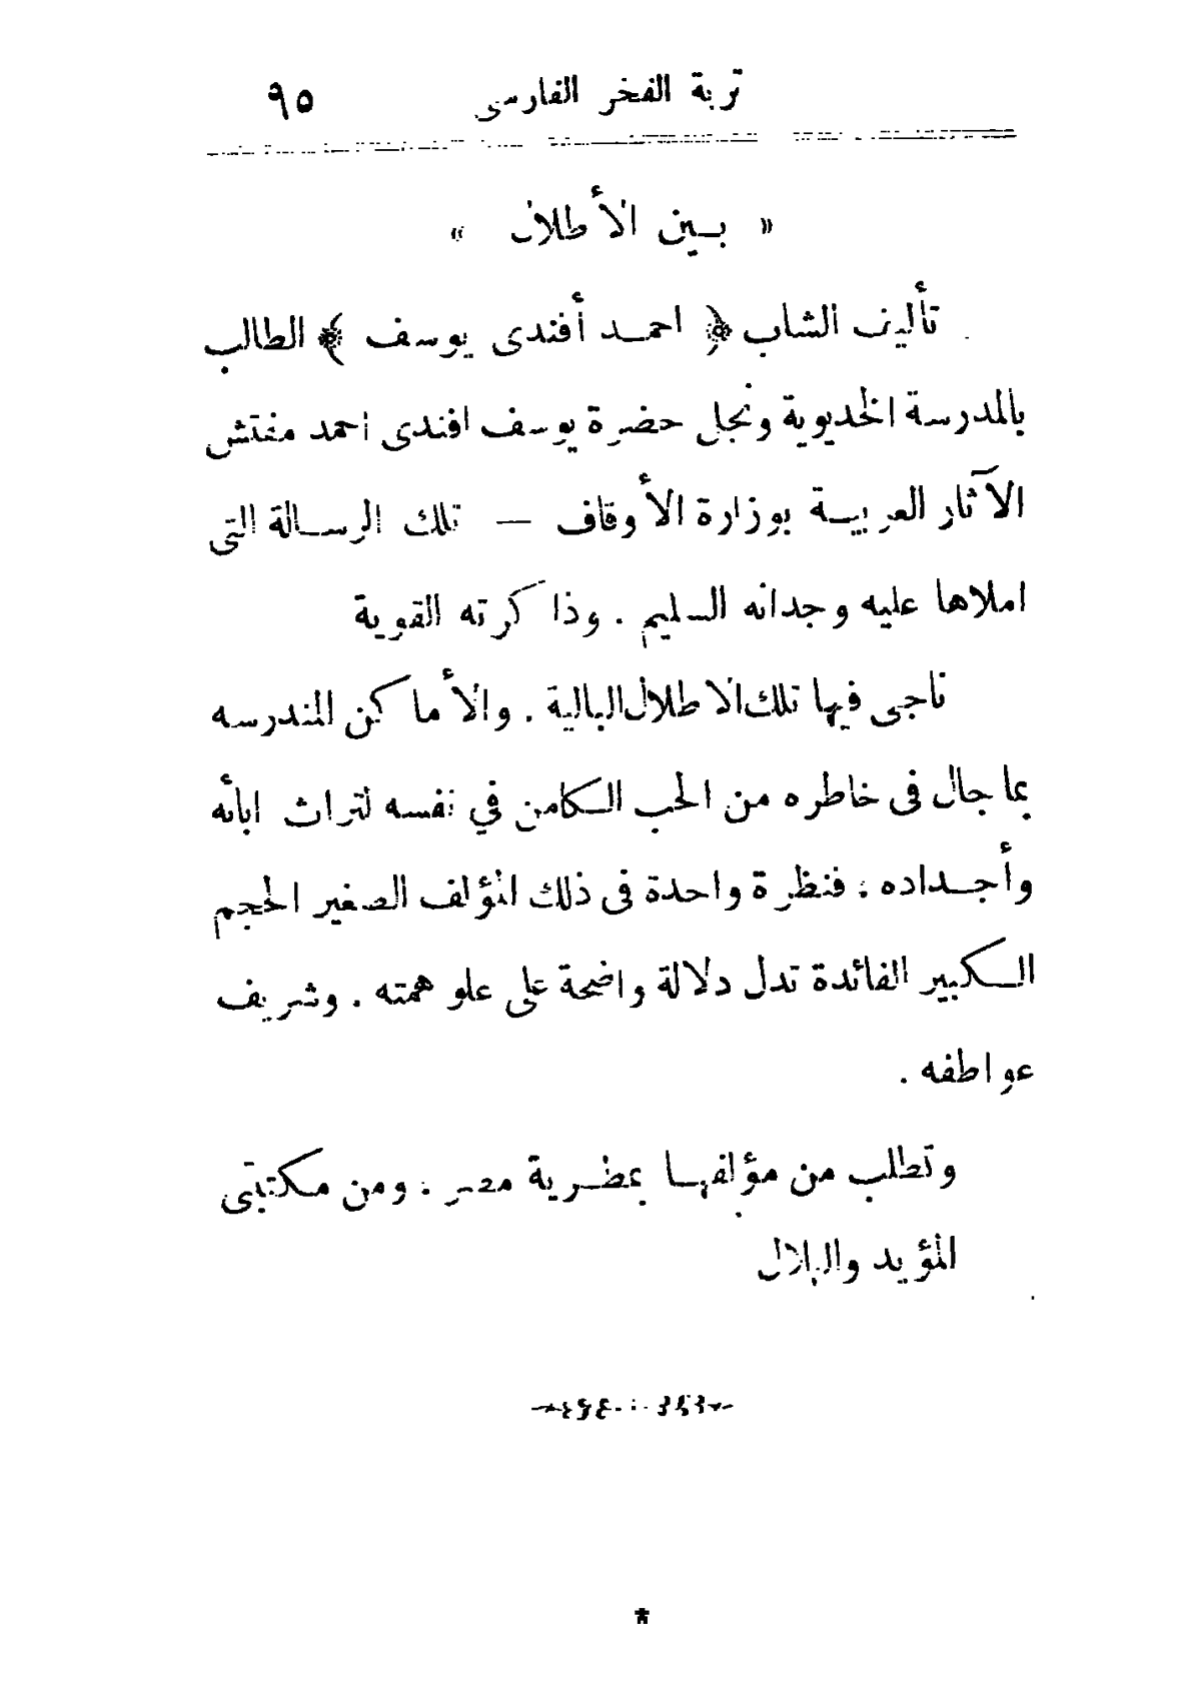 تربة الفخر الفارسى ٩٥
« بين الأطلال »
تأليف الشاب ﴿ احمد أفندى يوسف ﴾ الطالب
بالمدرسة الخديوية ونجل حضرة يوسف افندى احمد مفتش
الآثار العربية بوزارة الأوقاف — تلك الرسالة التى
املاها عليه وجدانه السليم . وذاكرته القوية
ناجى فيها تلك الاطلال البالية . والأماكن المندرسه
بما جال فى خاطره من الحب الكامن في نفسه لتراث ابائه
وأجداده . فنظرة واحدة فى ذلك المؤلف الصغير الحجم
الكبير الفائدة تدل دلالة واضحة على علو همته . وشريف
عواطفه .
وتطلب من مؤلفها بمطرية مصر . ومن مكتبتى
المؤيد والهلال
*